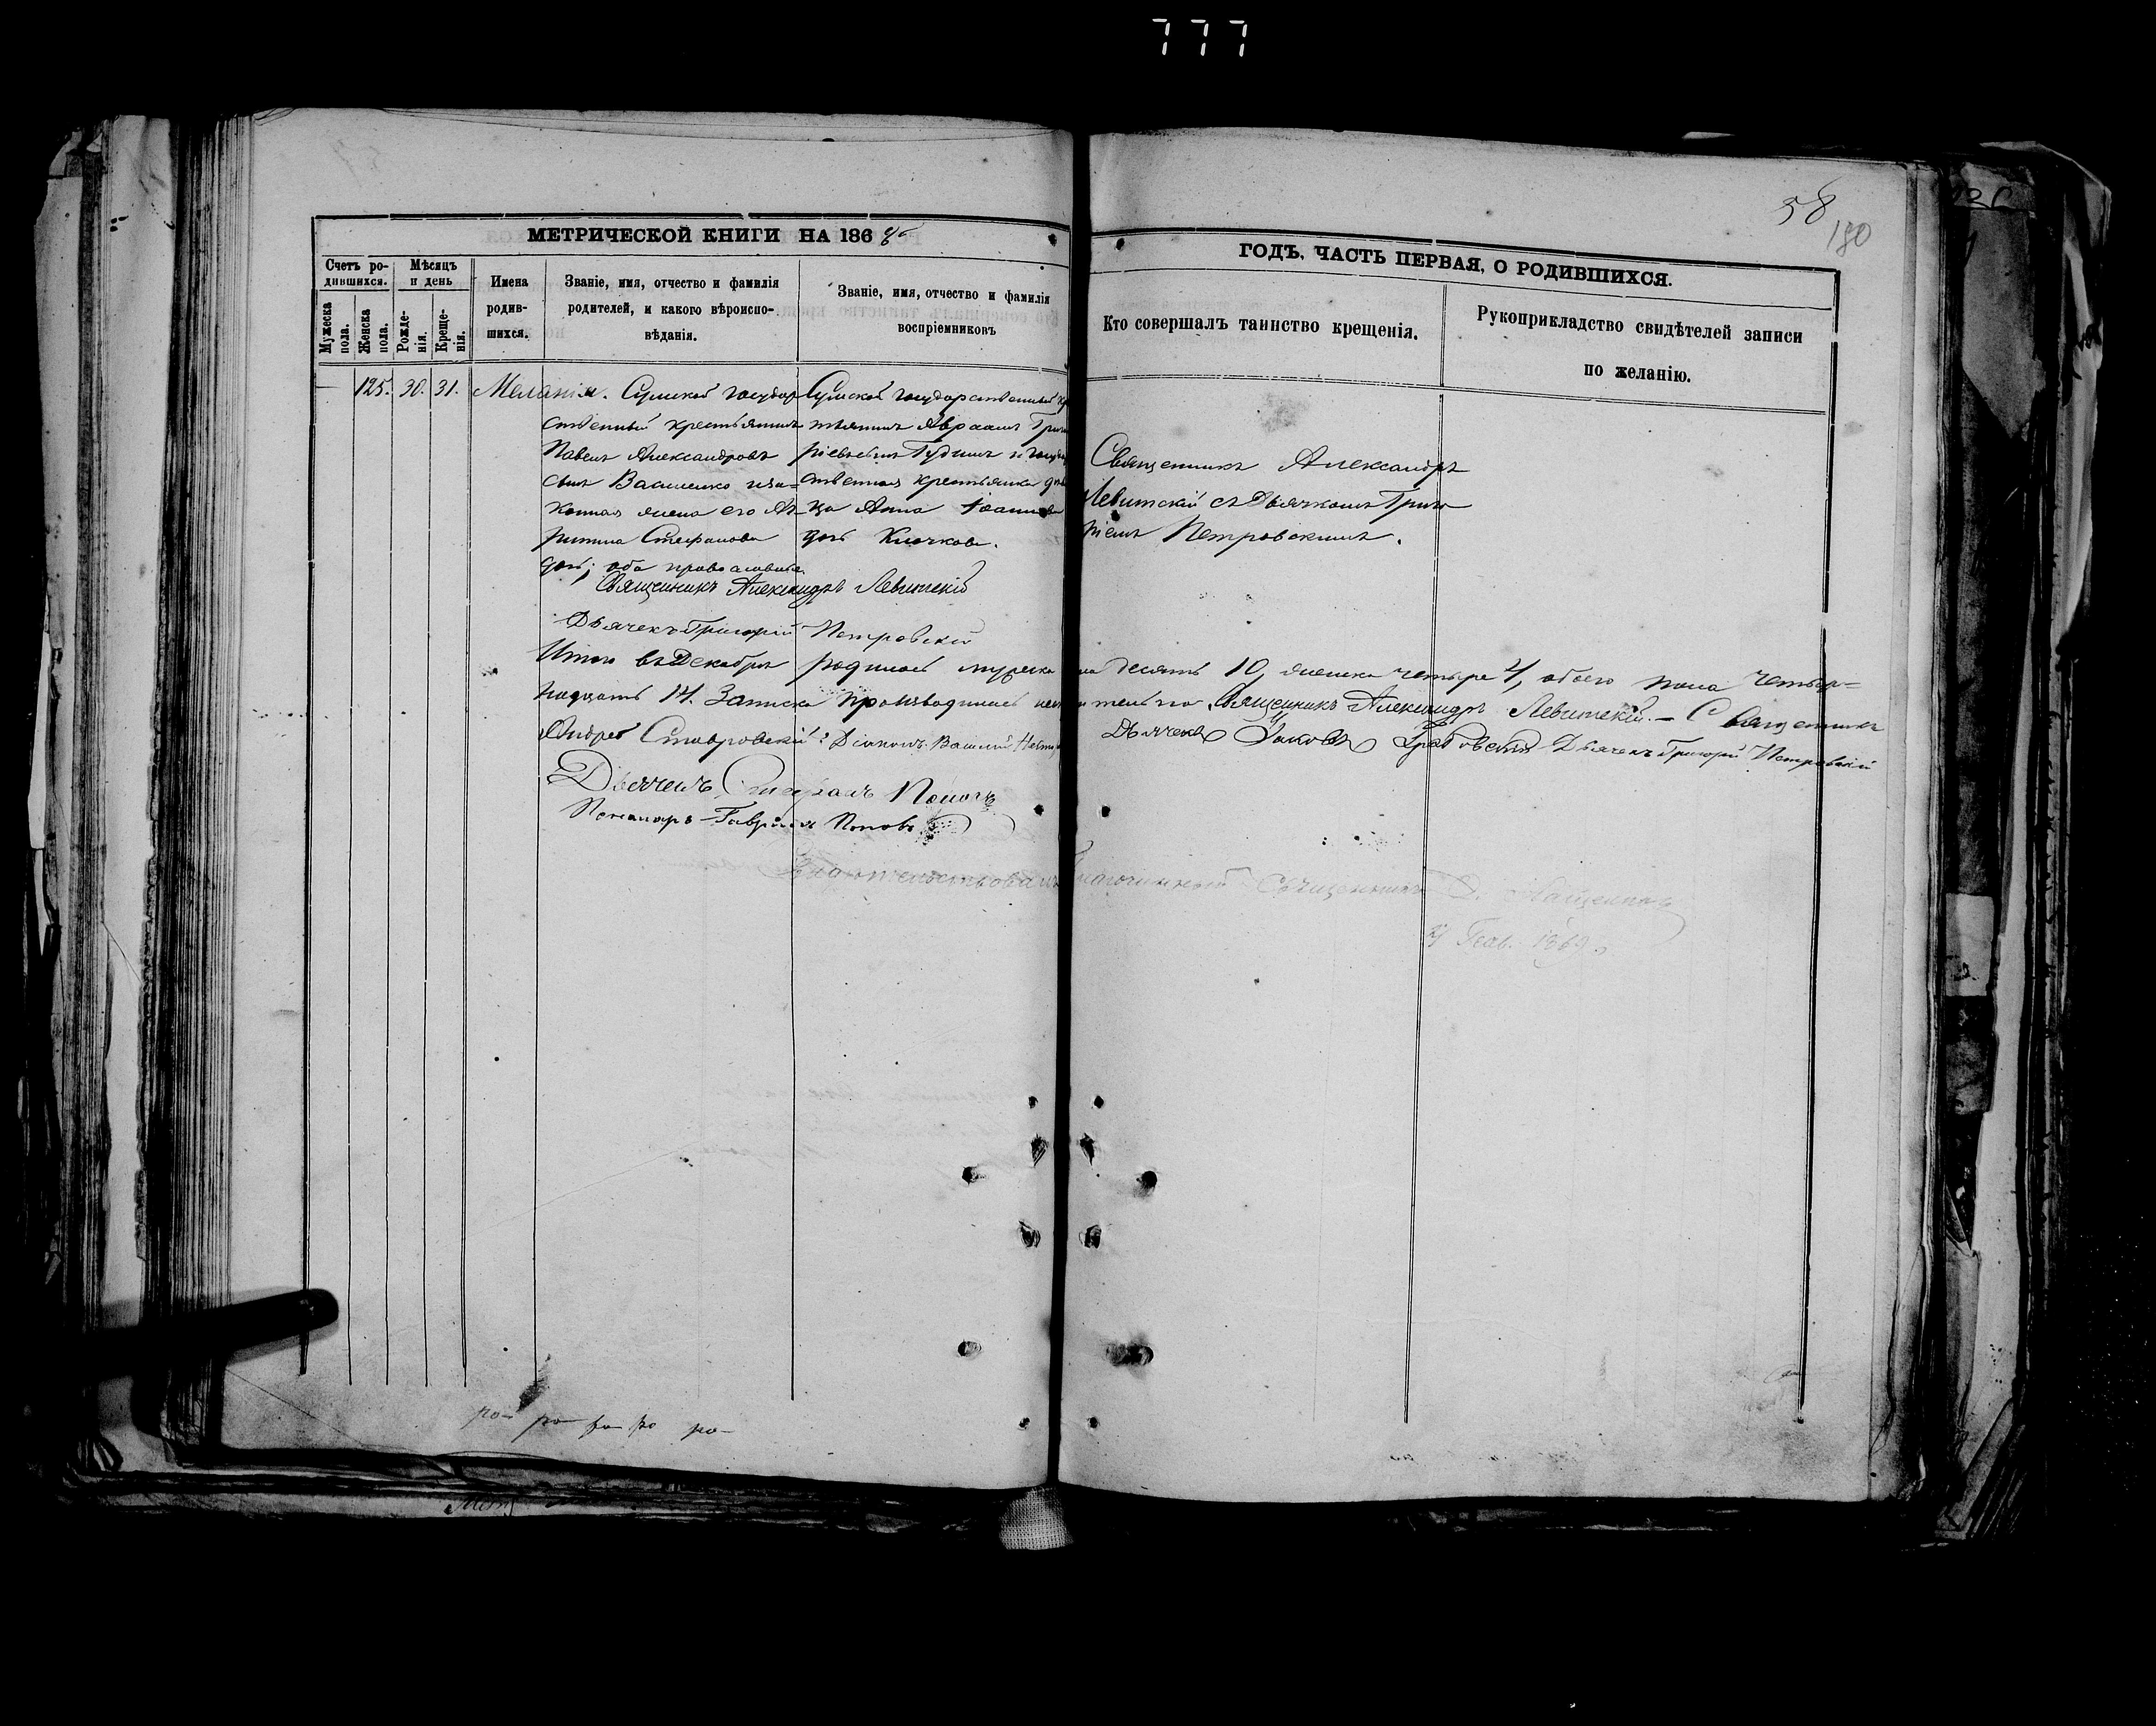 777
58
180
МЕТРИЧЕСКОЙ КНИГИ НА 1868
ГОДЪ, ЧАСТЬ ПЕРВАЯ, О РОДИВШИХСЯ.
Счетъ ро-
дившихся.
Мужеска
пола.
Женска
пола.
Мѣсяцъ
и день
Рожде-
нія.
Креще-
нія.
Имена
родив-
шихся.
Званіе, имя, отчество и фамилія
родителей, и какого вѣроиспо-
вѣданія.
Званіе, имя, отчество и фамилія
воспріемниковъ
Кто совершалъ таинство крещенія.
Рукоприкладство свидѣтелей записи
по желанію.
125. 30. 31. Меланія.
Сумской государ
ственный крестьянинъ
Павелъ Александровъ
сынъ Василенко и за-
конная жена его
Стефанова
дочь; оба православные.
Сумской государственный
Авраамъ
Гудимъ и
ственная крестьянка
ца Анна Іоаннова
дочь Клочкова.
Священникъ Александръ
Левитскій съ Дьячкомъ Григо
ріемъ Петровскимъ.
Священникъ Александръ Левитскій
Дьячекъ Григорій Петровскій
Итого въ Декабрѣ родилось мужска десять 10, женска четыре 4, обоего пола четыр=
надцать 14. Записка производилась Священникъ Александръ Левитскій. — Священникъ
Андрей Ставровскій Діаконъ Василій Дьячекъ Іаковъ Дьячекъ Григорій Петровскій
Дьячекъ Стефанъ Поповъ
Пономарь Гавріилъ Поповъ
Свидѣтельствовалъ Благочинный Священникъ
1869.
ро- ро- ро ро ро-